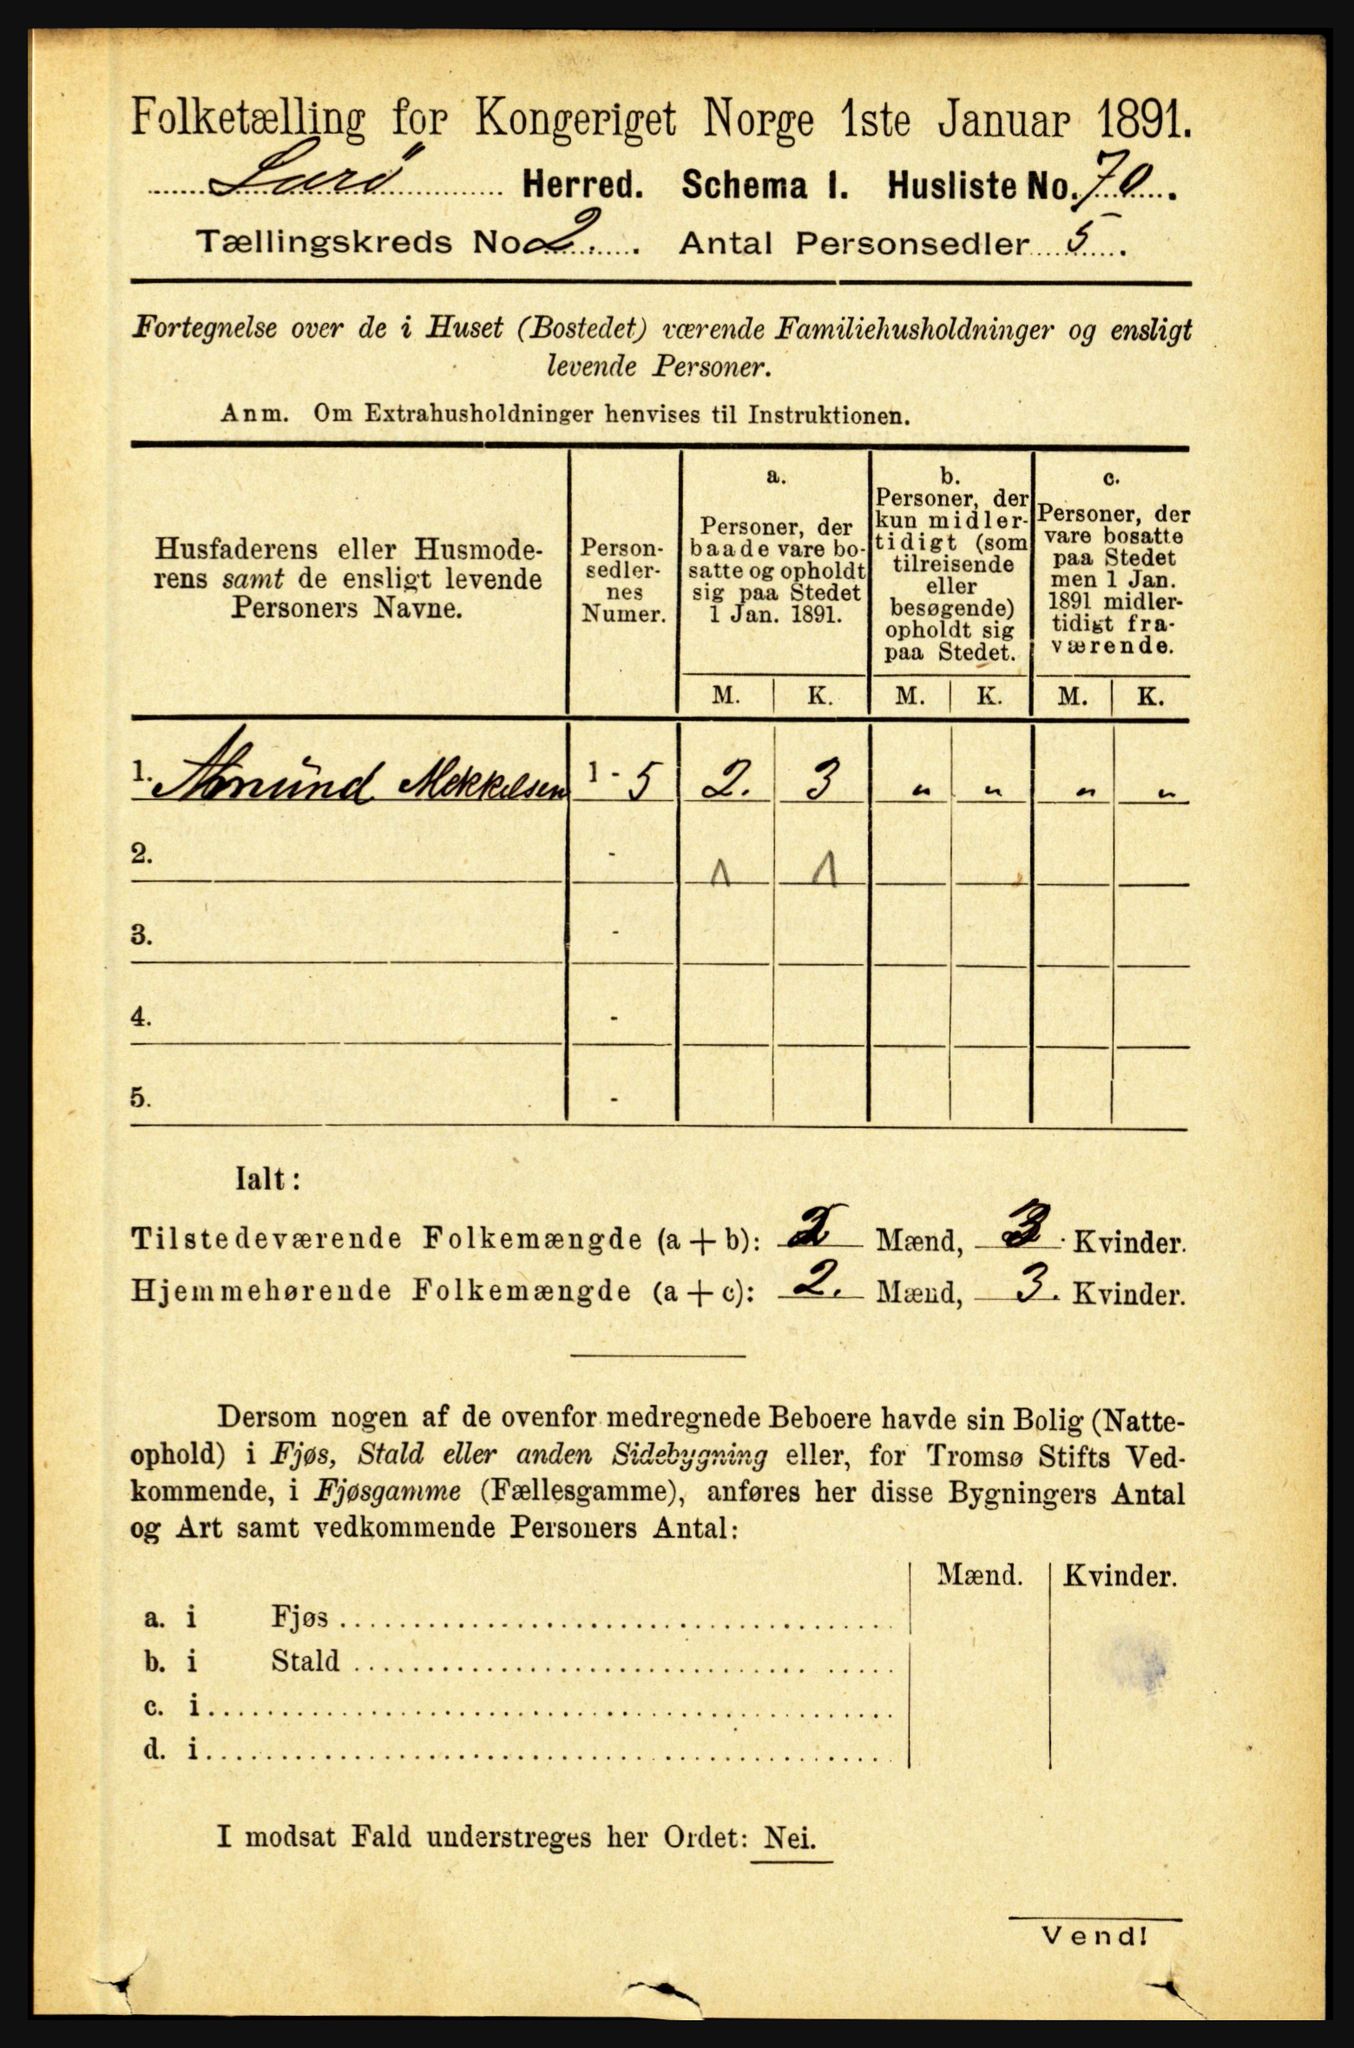 Folketælling for Kongeriget Norge 1ste Januar 1891.
Herred. Schema I. Husliste No. 70.
Tællingskreds No 2. Antal Personsedler 5.
Fortegnelse over de i Huset (Bostedet) værende Familiehusholdninger og ensligt
levende Personer.
Anm. Om Extrahusholdninger henvises til Instruktionen.
Husfaderens eller Husmode-
rens samt de ensligt levende
Personers Navne.
Person-
sedler-
nes
Numer.
a.
Personer, der
baade vare bo-
satte og opholdt
sig paa Stedet
1 Jan. 1891.
b.
Personer, der
kun midler-
tidigt (som
tilreisende
eller
besøgende)
opholdt sig
paa Stedet.
c.
Personer, der
vare bosatte
paa Stedet
men 1 Jan.
1891 midler-
tidigt fra-
værende.
M. K. M. K. M. K.
1. Amund Mekkelsen 1 - 5 2. 3 " " " "
2. - 1 1
3. -
4. -
5. -
Ialt:
Tilstedeværende Folkemængde (a + b): 2 Mænd, 3 Kvinder.
Hjemmehørende Folkemængde (a + c): 2. Mænd, 3. Kvinder.
Dersom nogen af de ovenfor medregnede Beboere havde sin Bolig (Natte-
ophold) i Fjøs, Stald eller anden Sidebygning eller, for Tromsø Stifts Ved-
kommende, i Fjøsgamme (Fællesgamme), anføres her disse Bygningers Antal
og Art samt vedkommende Personers Antal:
Mænd. Kvinder.
a. i Fjøs
b. i Stald
c. i
d. i
I modsat Fald understreges her Ordet: Nei.
Vend!